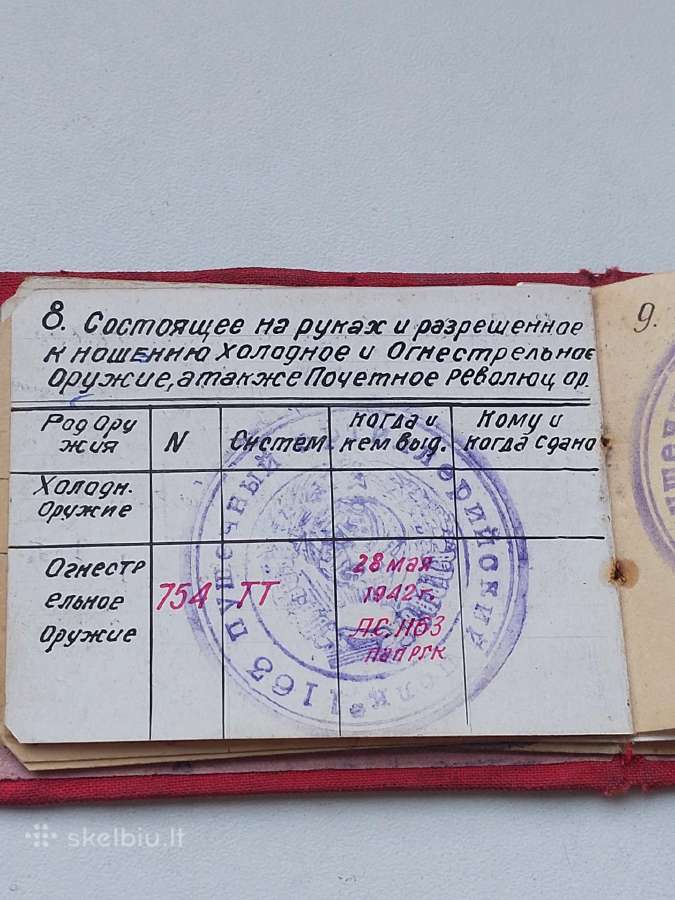 8. Состоящее на руках и разрешенное
к ношению Холодное и Огнестрельное
Оружие, а также Почетное Революц. ор.
Род Ору
жия
N
Систем.
Когда и
кем выд.
Кому и
когда сдано
Холодн.
Оружие
Огнестр
ельное
Оружие
754
ТТ
28 мая
1942 г.
1163
ПапРГК
1163 пушечный
полк
9.
skelbiu.lt